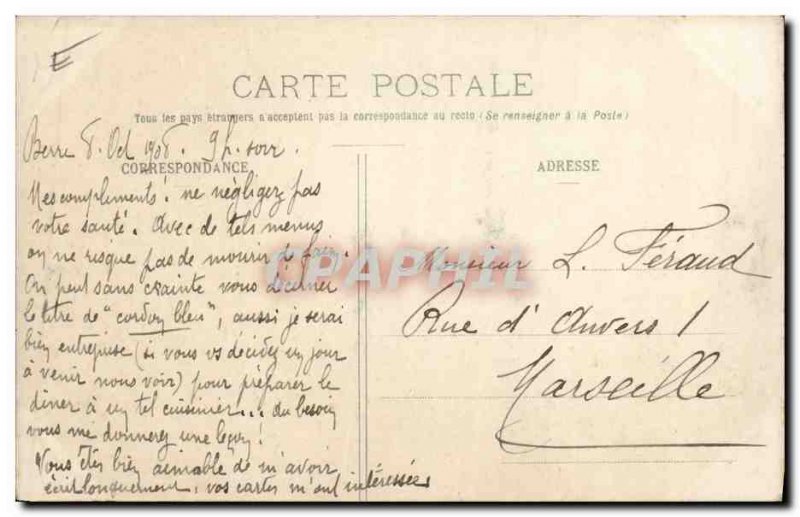 CARTE POSTALE
Tous les pays étrangers n'acceptent pas la correspondance au recto (Se renseigner à la Poste)
Berre 8 Oct 1908. 9h. soir.
CORRESPONDANCE
Mes compliments. ne négligez pas
votre santé. Avec de tels menus
on ne risque pas de mourir de faim.
On peut sans crainte vous décerner
le titre de "cordon bleu", aussi je serai
bien entreprise (si vous vs décidez un jour
à venir nous voir) pour préparer le
dîner à un tel cuisinier... du besoin
vous me donnerez une leçon!
Vous êtes bien aimable de m'avoir
écrit longuement, vos cartes m'ont intéressée
ADRESSE
Monsieur L. Féraud
Rue d'Anvers 1
Marseille
CPAPHIL